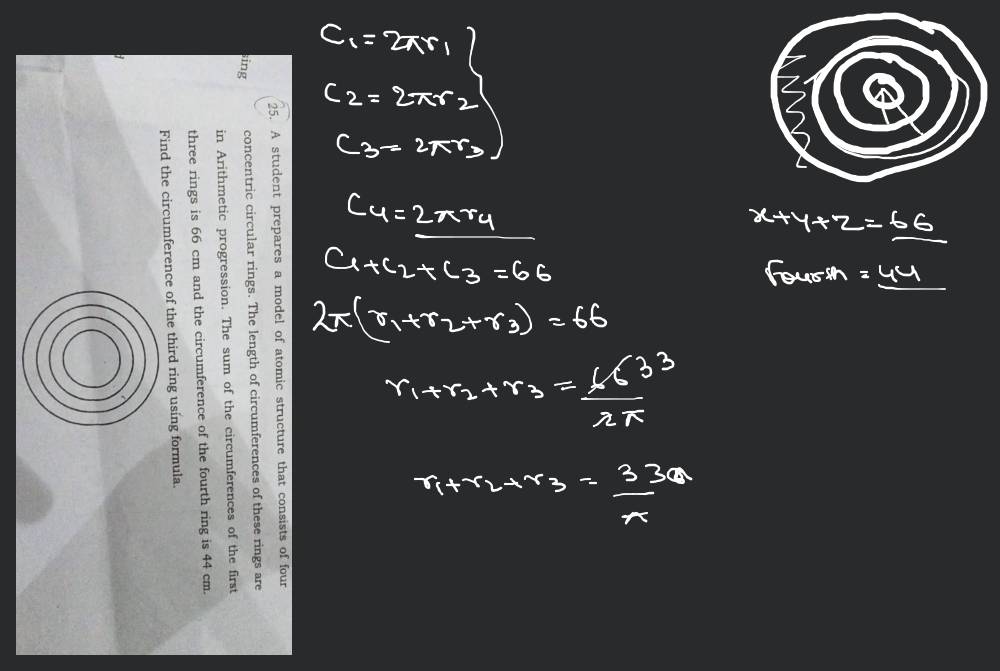 sing
25. A student prepares a model of atomic structure that consists of four
concentric circular rings. The length of circumferences of these rings are
in Arithmetic progression. The sum of the circumferences of the first
three rings is 66 cm and the circumference of the fourth ring is 44 cm.
Find the circumference of the third ring using formula.
C1 = 2πr1
C2 = 2πr2
C3 = 2πr3
C4 = 2πr4
C1+C2+C3 = 66
2π(r1+r2+r3) = 66
r1+r2+r3 = 66 33
2π
r1+r2+r3 = 33
π
x+y+z = 66
Fourth = 44